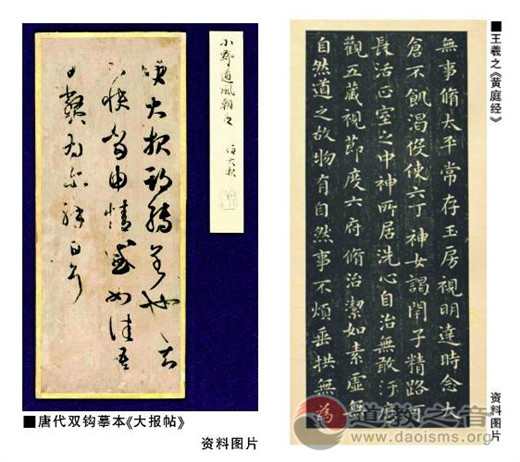 小野道風朝臣
海大報
大報期轉呈也知
不快當由情感如佳吾
日弊為爾解日耳
■唐代双钩摹本《大报帖》
资料图片
■王羲之《黄庭经》
無事脩太平常存玉房視明達時念大
倉不飢渴役使六丁神女謁閉子精路可
長活正室之中神所居洗心自治無敢汙歷
觀五藏視節度六府脩治潔如素虛無
自然道之故物有自然事不煩垂拱無為
资料图片
道教之音
www.daoisms.org